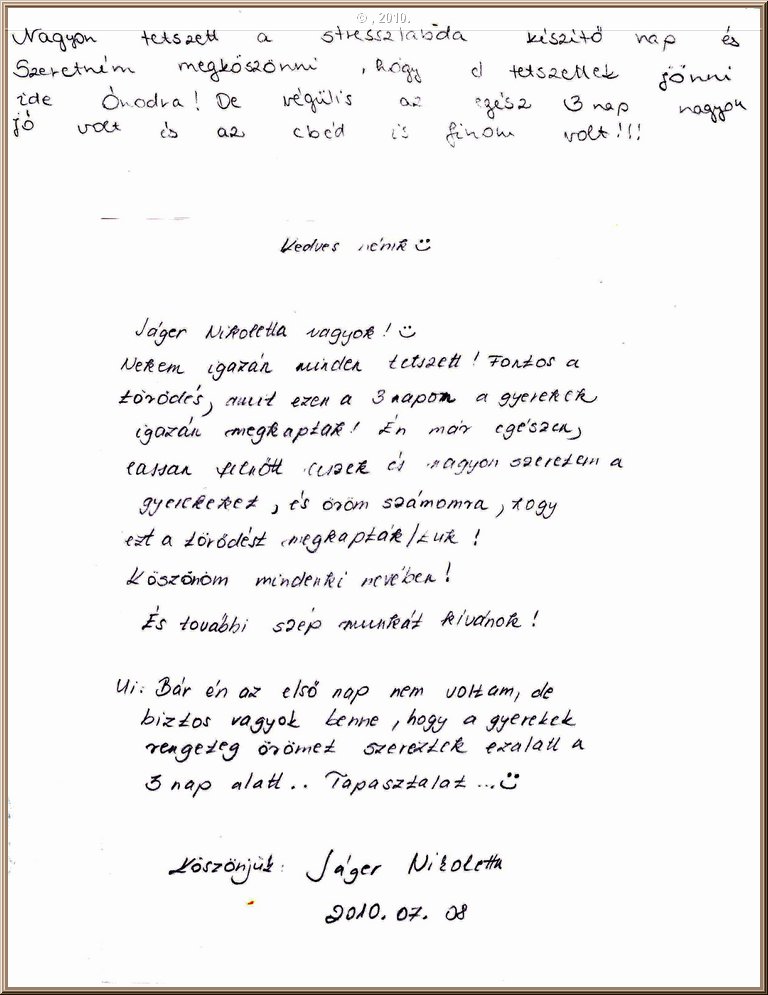 © , 2010.
Nagyon tetszett a stresszlabda készítő nap és
Szeretném megköszönni , hogy el tetszettek jönni
ide Ónodra! De végülis az egész 3 nap nagyon
jó volt és az ebéd is finom volt!!!
Kedves nénik ☺
Jáger Nikoletta vagyok! ☺
Nekem igazán minden tetszett! Fontos a
törödés, amit ezen a 3 napon a gyerekek
igazán megkaptak! Én már egészen,
lassan felnőtt leszek és nagyon szeretem a
gyerekeket, és öröm számomra, hogy
ezt a törödést megkapták/tuk!
Köszönöm mindenki nevében!
És további szép munkát kívánok!
Ui: Bár én az első nap nem voltam, de
biztos vagyok benne, hogy a gyerekek
rengeteg örömet szereztek ezalatt a
3 nap alatt.. Tapasztalat ... ☺
Köszönjük: Jáger Nikoletta
2010. 07. 08